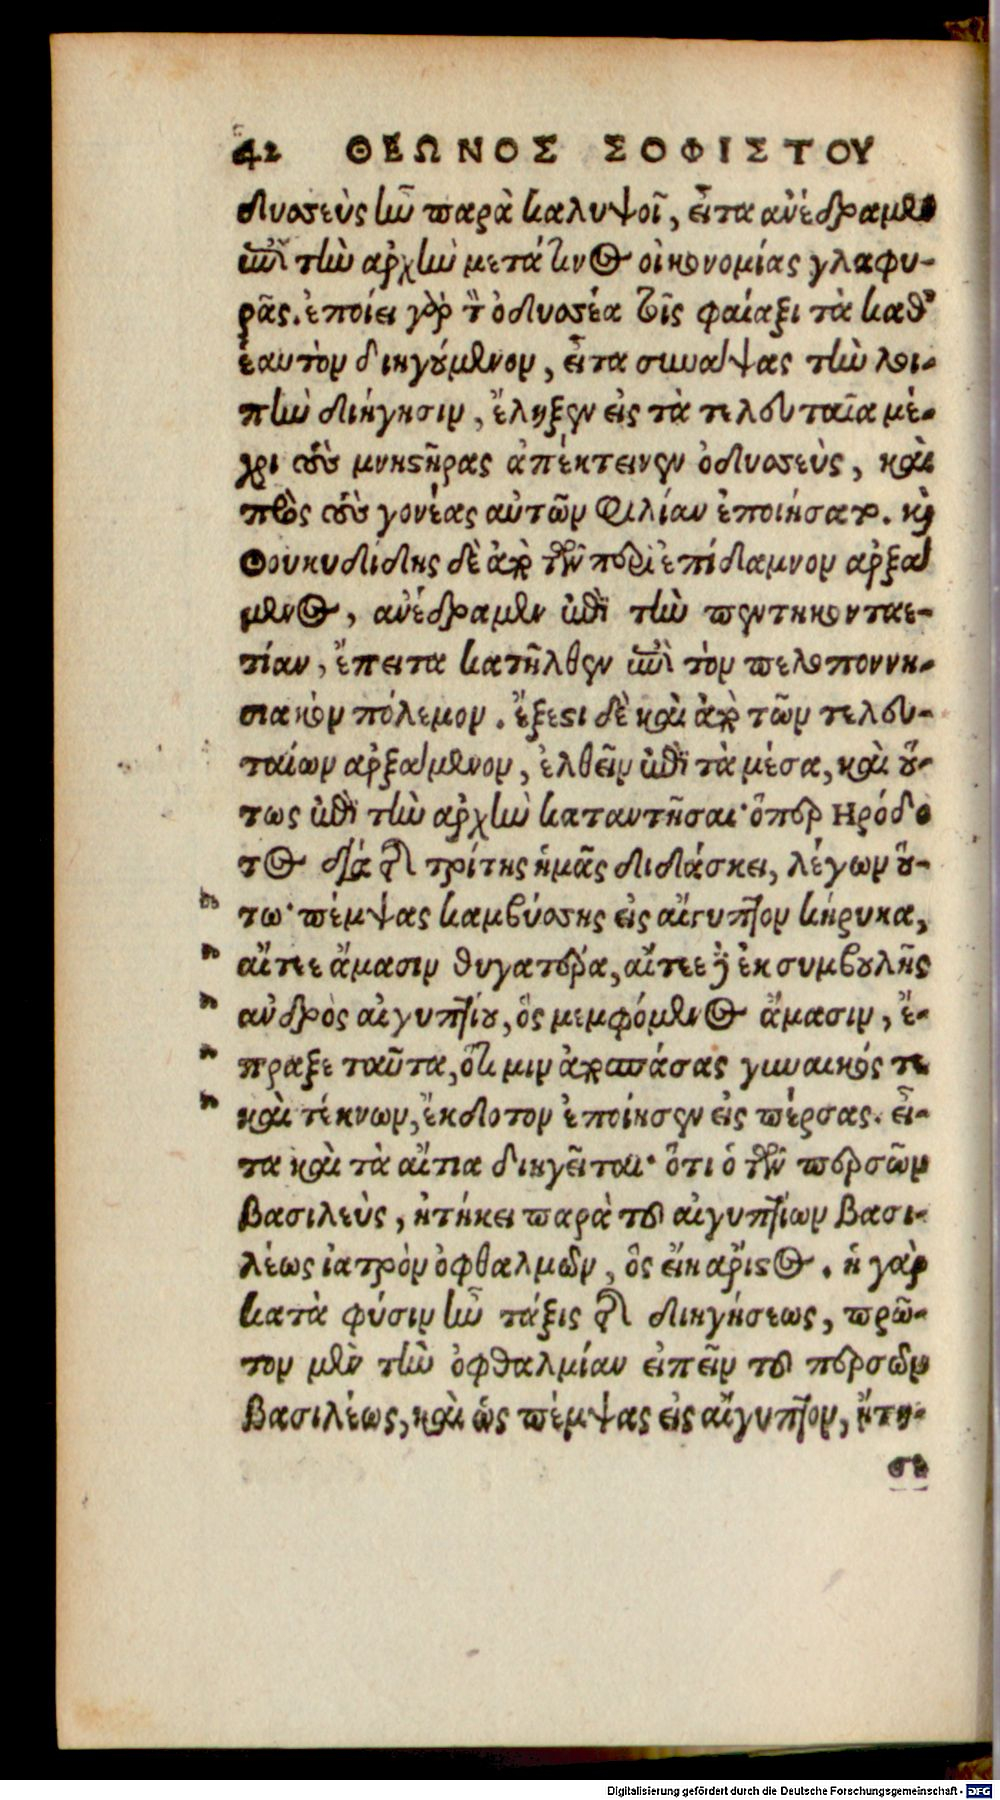 42 ΘΕΩΝΟΣ ΣΟΦΙΣΤΟΥ
δυσσεὺς ἦν παρὰ καλυψοῖ, εἶτα ἀνέδραμεν
ἐπὶ τὴν ἀρχὴν μετά τινος οἰκονομίας γλαφυ-
ρᾶς. ἐποίει γὰρ τὸν ὀδυσσέα τοῖς φαίαξι τὰ καθ’
ἑαυτὸν διηγούμενον, εἶτα συνάψας τὴν λοι-
πὴν διήγησιν, ἔληξεν εἰς τὰ τελευταῖα μέ-
χρι τοὺς μνηστῆρας ἀπέκτεινεν ὁ δυσσεὺς, καὶ
πρὸς τοὺς γονέας αὐτῶν φιλίαν ἐποιήσατο. καὶ
Θουκυδίδης δὲ ἀπὸ τῶν περὶ ἐπίδαμνον ἀρξά
μενος, ἀνέδραμεν ἐπὶ τὴν πεντηκονταε-
τίαν, ἔπειτα κατῆλθεν ἐπὶ τὸν πελοποννη-
σιακὸν πόλεμον. ἔξεστι δὲ καὶ ἀπὸ τῶν τελευ-
ταίων ἀρξάμενον, ἐλθεῖν ἐπὶ τὰ μέσα, καὶ οὕ-
τως ἐπὶ τὴν ἀρχὴν καταντῆσαι· ὅπερ Ηρόδο
τος διὰ τῆς τρίτης ἡμᾶς διδάσκει, λέγων οὕ-
τω· πέμψας καμβύσης εἰς αἴγυπτον κήρυκα,
αἴτεε ἄμασιν θυγατέρα, αἴτεε δὲ ἐκ συμβουλῆς
ἀνδρὸς αἰγυπτίου, ὃς μεμφόμενος ἄμασιν, ἔ-
πραξε ταῦτα, ὅτι μιν ἀποσπάσας γυναικός τε
καὶ τέκνων, ἔκδοτον ἐποίησεν εἰς πέρσας. εἶ-
τα καὶ τὰ αἴτια διηγεῖται· ὅτι ὁ τῶν περσῶν
βασιλεὺς, ᾐτήκει παρὰ τοῦ αἰγυπτίων βασι-
λέως ἰατρὸν ὀφθαλμῶν, ὃς εἴη ἄριστος. ἡ γὰρ
κατὰ φύσιν ἦν τάξις τῆς διηγήσεως, πρῶ-
τον μὲν τὴν ὀφθαλμίαν εἰπεῖν τοῦ περσῶν
βασιλέως, καὶ ὡς πέμψας εἰς αἴγυπτον, ᾔτη-
σε
Digitalisierung gefördert durch die Deutsche Forschungsgemeinschaft - DFG